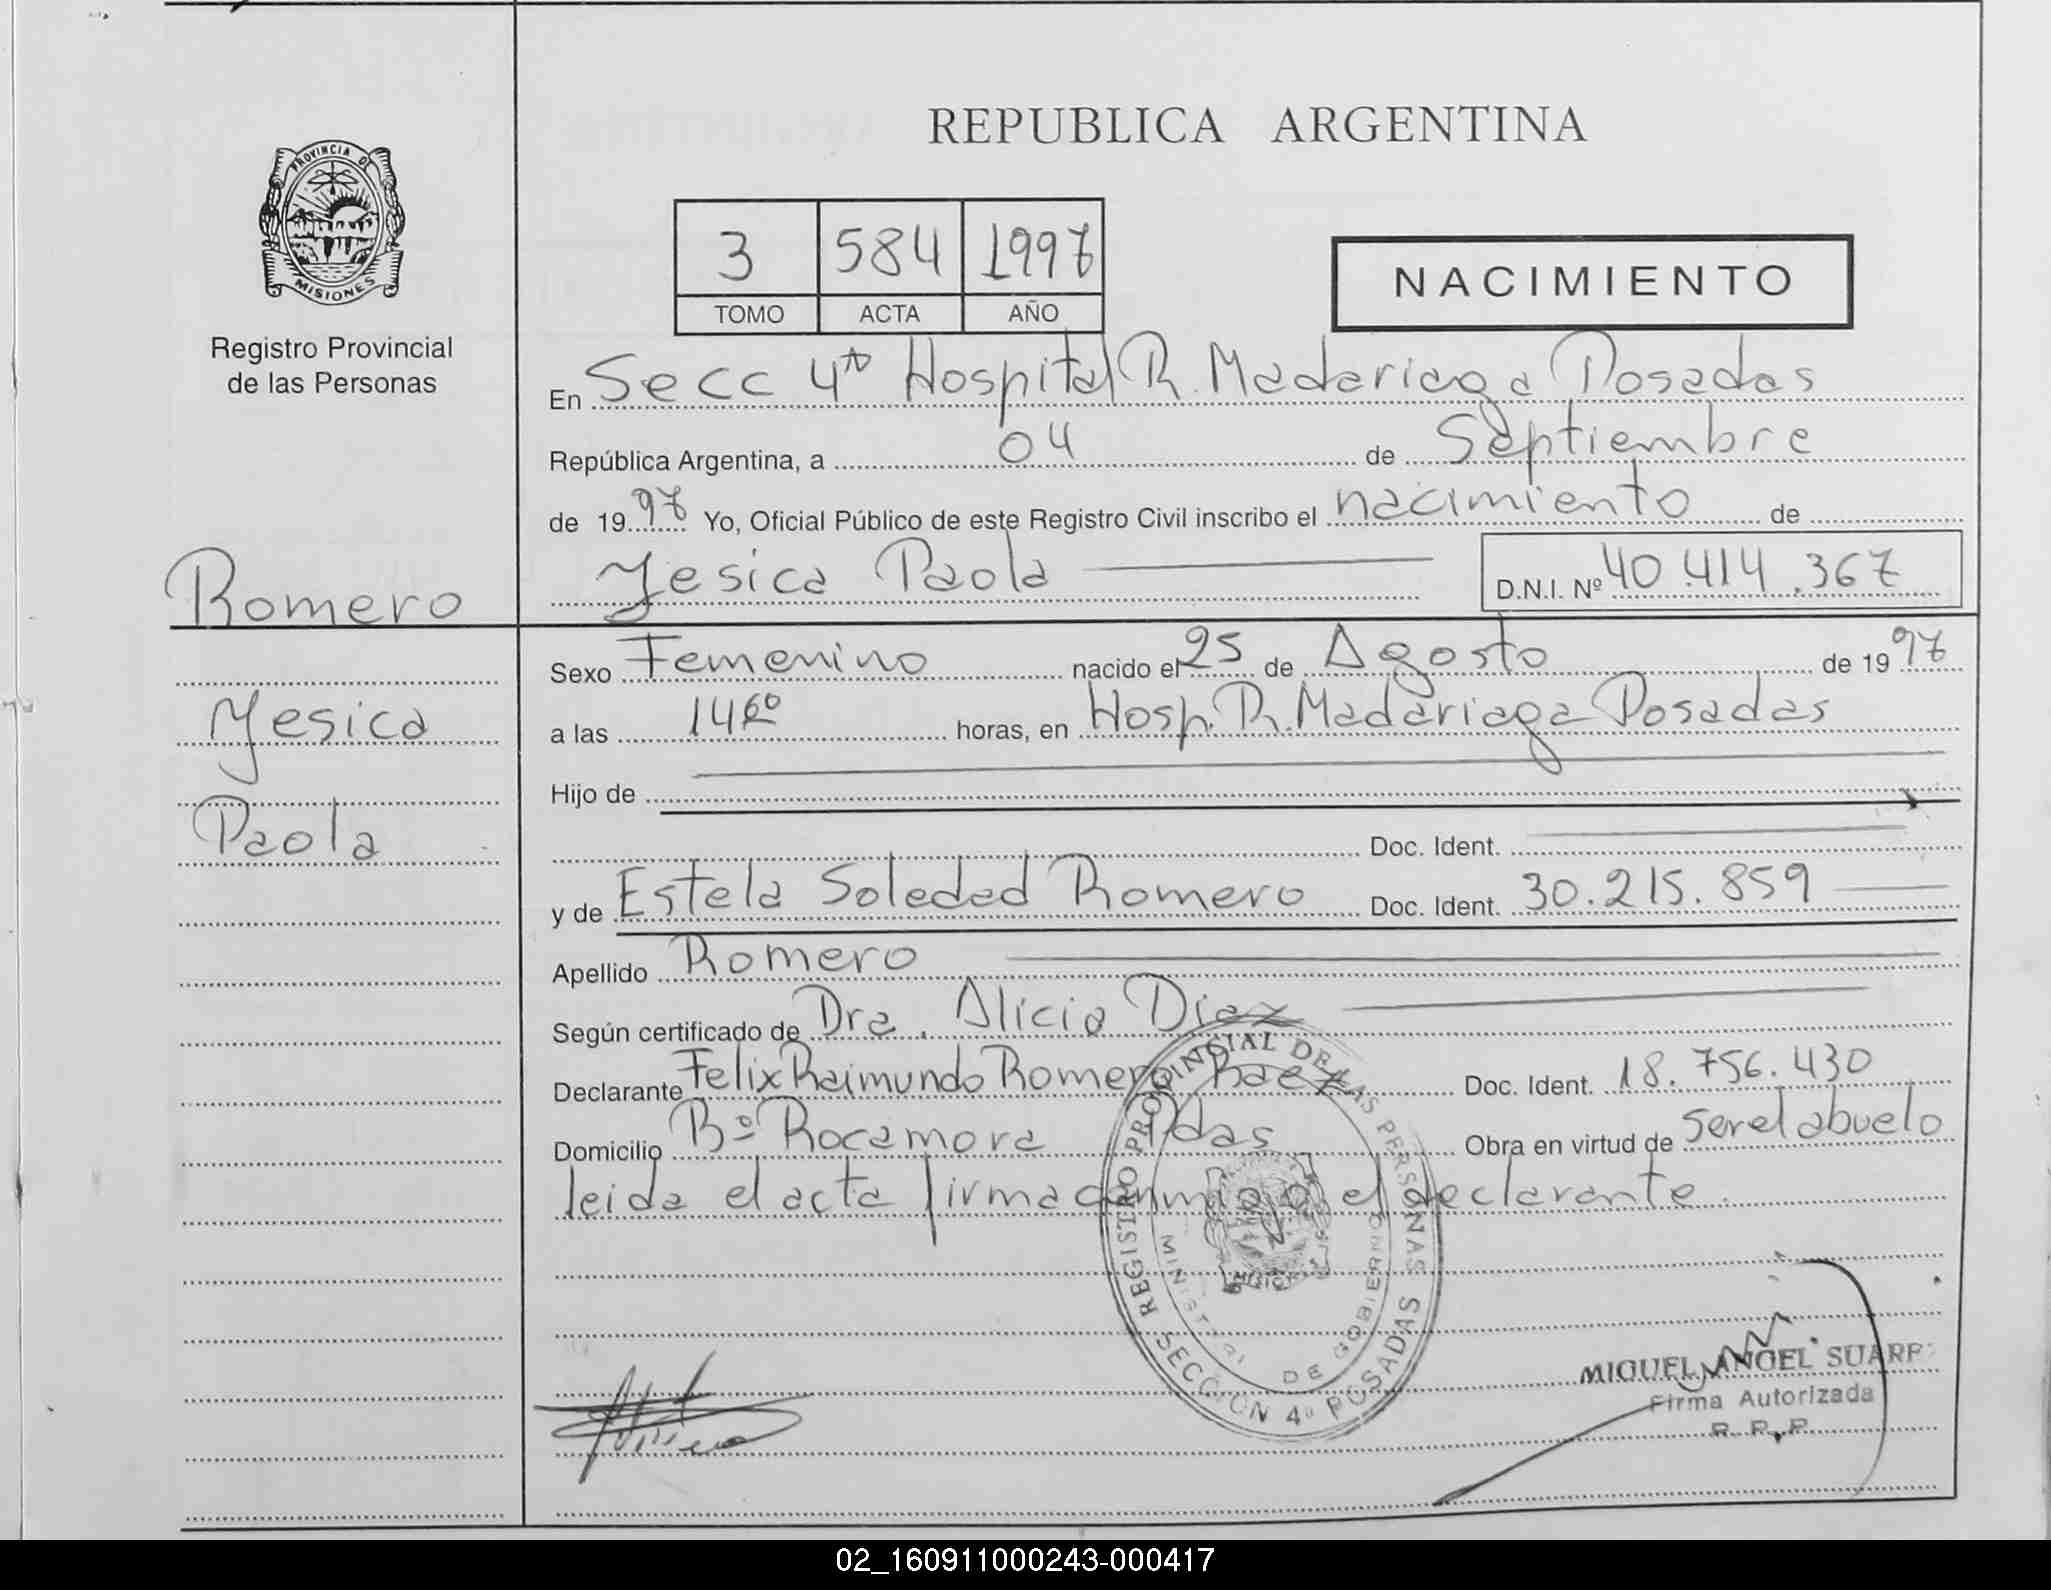 REPUBLICA ARGENTINA
PROVINCIA DE
MISIONES
Registro Provincial
de las Personas
3 584 1997
TOMO ACTA AÑO
NACIMIENTO
En Secc 4ta Hospital R. Madariaga Posadas
República Argentina, a 04 de Septiembre
de 1997 Yo, Oficial Público de este Registro Civil inscribo el nacimiento de
Yesica Paola D.N.I. Nº 40.414.367
Romero
Yesica
Paola
Sexo Femenino nacido el 25 de Agosto de 1997
a las 14 horas, en Hosp. R. Madariaga Posadas
Hijo de
Doc. Ident.
y de Estela Soledad Romero Doc. Ident. 30.215.859
Apellido Romero
Según certificado de Dra. Alicia Diaz
Declarante Felix Raimundo Romero Baez Doc. Ident. 18.756.430
Domicilio Bº Rocamora Pdas Obra en virtud de ser el abuelo
leida el acta firma conmigo el declarante.
REGISTRO PROVINCIAL DE LAS PERSONAS
SECCION 4º POSADAS
MINISTERIO DE GOBIERNO
MIGUEL ANGEL SUAREZ
Firma Autorizada
R. P. P.
02_160911000243-000417